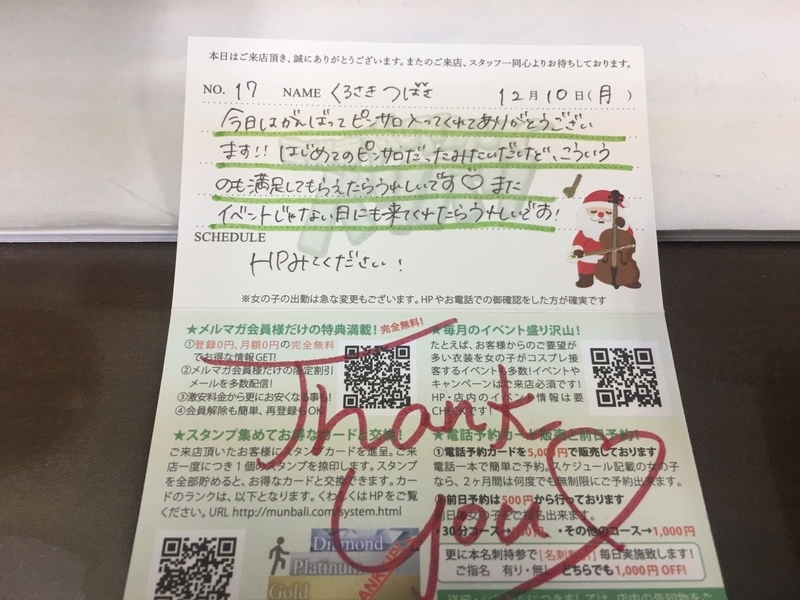 本日はご来店頂き、誠にありがとうございます。またのご来店、スタッフ一同心よりお待ちしております。
NO. 17 NAME くろさき つばさ 12月10日(月)
今日はがんばってピンサロ入ってくれてありがとうござい
ます!! はじめてのピンサロだったみたいだけど、こういう
のも満足してもらえたらうれしいです♡ また
イベントじゃない日にも来てくれたらうれしいです!
SCHEDULE
HPみてください!
※女の子の出勤は急な変更もございます。HPやお電話での御確認をした方が確実です
★メルマガ会員様だけの特典満載! 完全無料!
①登録0円、月額0円の完全無料
でお得な情報GET!
②メルマガ会員様だけの限定割引
メールを多数配信!
③激安料金から更にお安くなる事も!
④会員解除も簡単、再登録もOK!
★毎月のイベント盛り沢山!
たとえば、お客様からのご要望が
多い衣装を女の子がコスプレ接
客するイベントも多数!イベントや
キャンペーンはご来店必須です!
HP・店内のイベント情報は要
CHECKです!
Thank you
★スタンプ集めてお得なカードと交換!
ご来店頂いたお客様にスタンプカードを進呈。ご来
店一度につき1個のスタンプを捺印します。スタンプ
を全部貯めると、お得なカードと交換できます。カー
ドのランクは、以下となります。くわしくはHPをご覧
ください。URL http://munbali.com/system.html
Diamond
Platinum
Gold
★電話予約カード販売と前日予約!
①電話予約カードを5,000円で販売しております
電話一本で簡単ご予約。スケジュール記載の女の子
なら、2ヶ月間は何度でも無制限にご予約出来ます。
②前日予約は500円から行っております
・30分コース→
・その他のコース→1,000円
更に本名刺持参で[名刺割引]毎日実施致します!
ご指名 有り・無し どちらでも1,000円OFF!